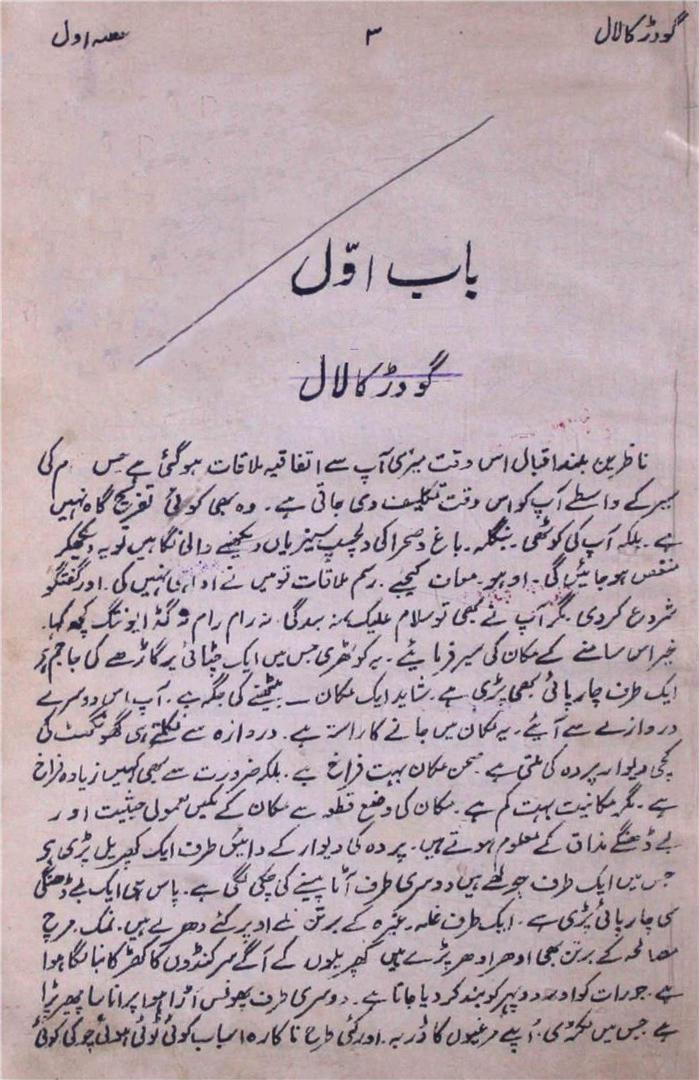 گودڑ کا لال ۳ حصہ اول
باب اوّل
گودڑ کا لال
ناظرین بلند اقبال اس وقت میری آپ سے اتفاقیہ ملاقات ہوگئی ہے جس کی
سیر کے واسطے آپ کو اس وقت تکلیف دی جاتی ہے ۔ وہ بھی کوئی تفریح گاہ نہیں
ہے ۔ بلکہ آپ کی کوٹھی ۔ بنگلہ ۔ باغ و صحرا کی دلچسپ سبزیاں دیکھنے والی نگاہیں تو یہ دیکھکر
منغص ہو جائیں گی ۔ اوہو ۔ معاف کیجیے ۔ رسم ملاقات تو میں نے ادا ہی نہیں کی ۔ اور گفتگو
شروع کر دی ۔ مگر آپ نے بھی تو سلام علیک نہ بندگی نہ رام رام نہ گڈ ایوننگ کچھ کہا ۔
خیر اس سامنے کے مکان کی سیر فرمایئے ۔ یہ کوٹھری جس میں ایک چٹائی پر گاڑھے کی جاجم پر
ایک طرف چارپائی بھی پڑی ہے ۔ شاید ایک مکان بیٹھنے کی جگہ ہے ۔ آپ اس دوسرے
دروازے سے آیئے ۔ یہ مکان میں جانے کا راستہ ہے ۔ دروازہ سے نکلتے ہی گھونگھٹ کی
کچی دیوار پردہ کی ملتی ہے ۔ صحن مکان بہت فراخ ہے ۔ بلکہ ضرورت سے بھی کہیں زیادہ فراخ
ہے ۔ مگر مکانیت بہت کم ہے ۔ مکان کی وضع قطع سے مکان کے مکیں معمولی حیثیت اور
بے ڈھنگے مذاق کے معلوم ہوتے ہیں ۔ پردہ کی دیوار کے دائیں طرف ایک کھپریل پڑی ہے
جس میں ایک طرف چولھے ہیں دوسری طرف آٹا پیسنے کی چکی لگی ہے ۔ پاس ہی ایک بے ڈھنگی
سی چارپائی پڑی ہے ۔ ایک طرف غلہ وغیرہ کے برتن تلے اوپر کئے دھرے ہیں ۔ نمک ۔ مرچ
مصالحہ کے برتن بھی ادھر ادھر پڑے ہیں کھپریلوں کے آگے سرکنڈوں کا کھڑکا بنا لگا ہوا
ہے ۔ جو رات کو اور دوپہر کو بند کر دیا جاتا ہے ۔ دوسری طرف پھونس اڑا ہوا پرانا سا چھپر پڑا
ہے جس میں لکڑی ۔ اُپلے مرغیوں کا ڈربہ ۔ اور کئی طرح ناکارہ اسباب کوئی ٹوٹی ہوئی چوکی کوئی